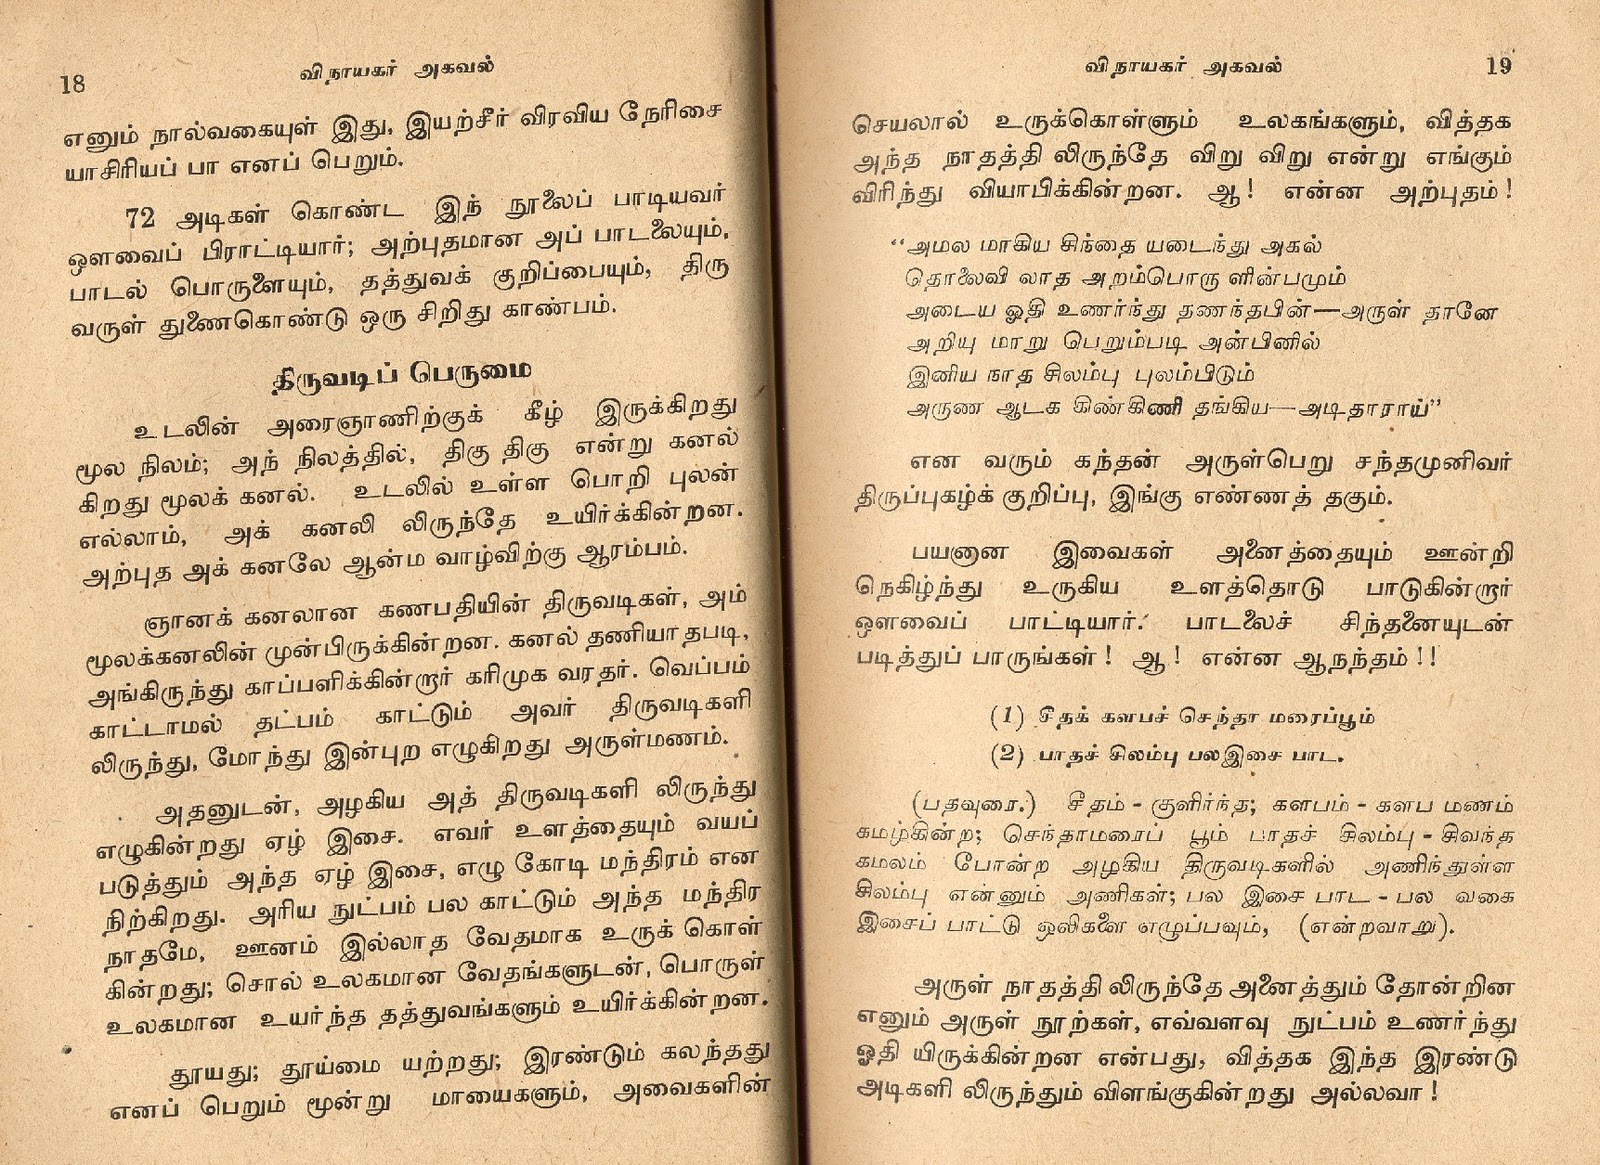 18
விநாயகர் அகவல்
எனும் நால்வகையுள் இது, இயற்சீர் விரவிய நேரிசை
யாசிரியப் பா எனப் பெறும்.
72 அடிகள் கொண்ட இந் நூலைப் பாடியவர்
ஔவைப் பிராட்டியார்; அற்புதமான அப் பாடலையும்,
பாடல் பொருளையும், தத்துவக் குறிப்பையும், திரு
வருள் துணைகொண்டு ஒரு சிறிது காண்பம்.
திருவடிப் பெருமை
உடலின் அரைஞாணிற்குக் கீழ் இருக்கிறது
மூல நிலம்; அந் நிலத்தில், திகு திகு என்று கனல்
கிறது மூலக் கனல். உடலில் உள்ள பொறி புலன்
எல்லாம், அக் கனலி லிருந்தே உயிர்க்கின்றன.
அற்புத அக் கனலே ஆன்ம வாழ்விற்கு ஆரம்பம்.
ஞானக் கனலான கணபதியின் திருவடிகள், அம்
மூலக்கனலின் முன்பிருக்கின்றன. கனல் தணியாதபடி,
அங்கிருந்து காப்பளிக்கின்றார் கரிமுக வரதர். வெப்பம்
காட்டாமல் தட்பம் காட்டும் அவர் திருவடிகளி
லிருந்து, மோந்து இன்புற எழுகிறது அருள்மணம்.
அதனுடன், அழகிய அத் திருவடிகளி லிருந்து
எழுகின்றது ஏழ் இசை. எவர் உளத்தையும் வயப்
படுத்தும் அந்த ஏழ் இசை, எழு கோடி மந்திரம் என
நிற்கிறது. அரிய நுட்பம் பல காட்டும் அந்த மந்திர
நாதமே, ஊனம் இல்லாத வேதமாக உருக் கொள்
கின்றது; சொல் உலகமான வேதங்களுடன், பொருள்
உலகமான உயர்ந்த தத்துவங்களும் உயிர்க்கின்றன.
தூயது; தூய்மை யற்றது; இரண்டும் கலந்தது
எனப் பெறும் மூன்று மாயைகளும், அவைகளின்
விநாயகர் அகவல்
19
செயலால் உருக்கொள்ளும் உலகங்களும், வித்தக
அந்த நாதத்தி லிருந்தே விறு விறு என்று எங்கும்
விரிந்து வியாபிக்கின்றன. ஆ! என்ன அற்புதம்!
"அமல மாகிய சிந்தை யடைந்து அகல்
தொலைவி லாத அறம்பொரு ளின்பமும்
அடைய ஓதி உணர்ந்து தணந்தபின்—அருள் தானே
அறியு மாறு பெறும்படி அன்பினில்
இனிய நாத சிலம்பு புலம்பிடும்
அருண ஆடக கிண்கிணி தங்கிய—அடிதாராய்"
என வரும் கந்தன் அருள்பெறு சந்தமுனிவர்
திருப்புகழ்க் குறிப்பு, இங்கு எண்ணத் தகும்.
பயனான இவைகள் அனைத்தையும் ஊன்றி
நெகிழ்ந்து உருகிய உளத்தொடு பாடுகின்றார்
ஔவைப் பாட்டியார். பாடலைச் சிந்தனையுடன்
படித்துப் பாருங்கள்! ஆ! என்ன ஆநந்தம்!!
(1) சீதக் களபச் செந்தா மரைப்பூம்
(2) பாதச் சிலம்பு பலஇசை பாட.
(பதவுரை.) சீதம் - குளிர்ந்த; களபம் - களப மணம்
கமழ்கின்ற; செந்தாமரைப் பூம் பாதச் சிலம்பு - சிவந்த
கமலம் போன்ற அழகிய திருவடிகளில் அணிந்துள்ள
சிலம்பு என்னும் அணிகள்; பல இசை பாட - பல வகை
இசைப் பாட்டு ஒலிகளை எழுப்பவும், (என்றவாறு).
அருள் நாதத்தி லிருந்தே அனைத்தும் தோன்றின
எனும் அருள் நூற்கள், எவ்வளவு நுட்பம் உணர்ந்து
ஓதி யிருக்கின்றன என்பது, வித்தக இந்த இரண்டு
அடிகளி லிருந்தும் விளங்குகின்றது அல்லவா!